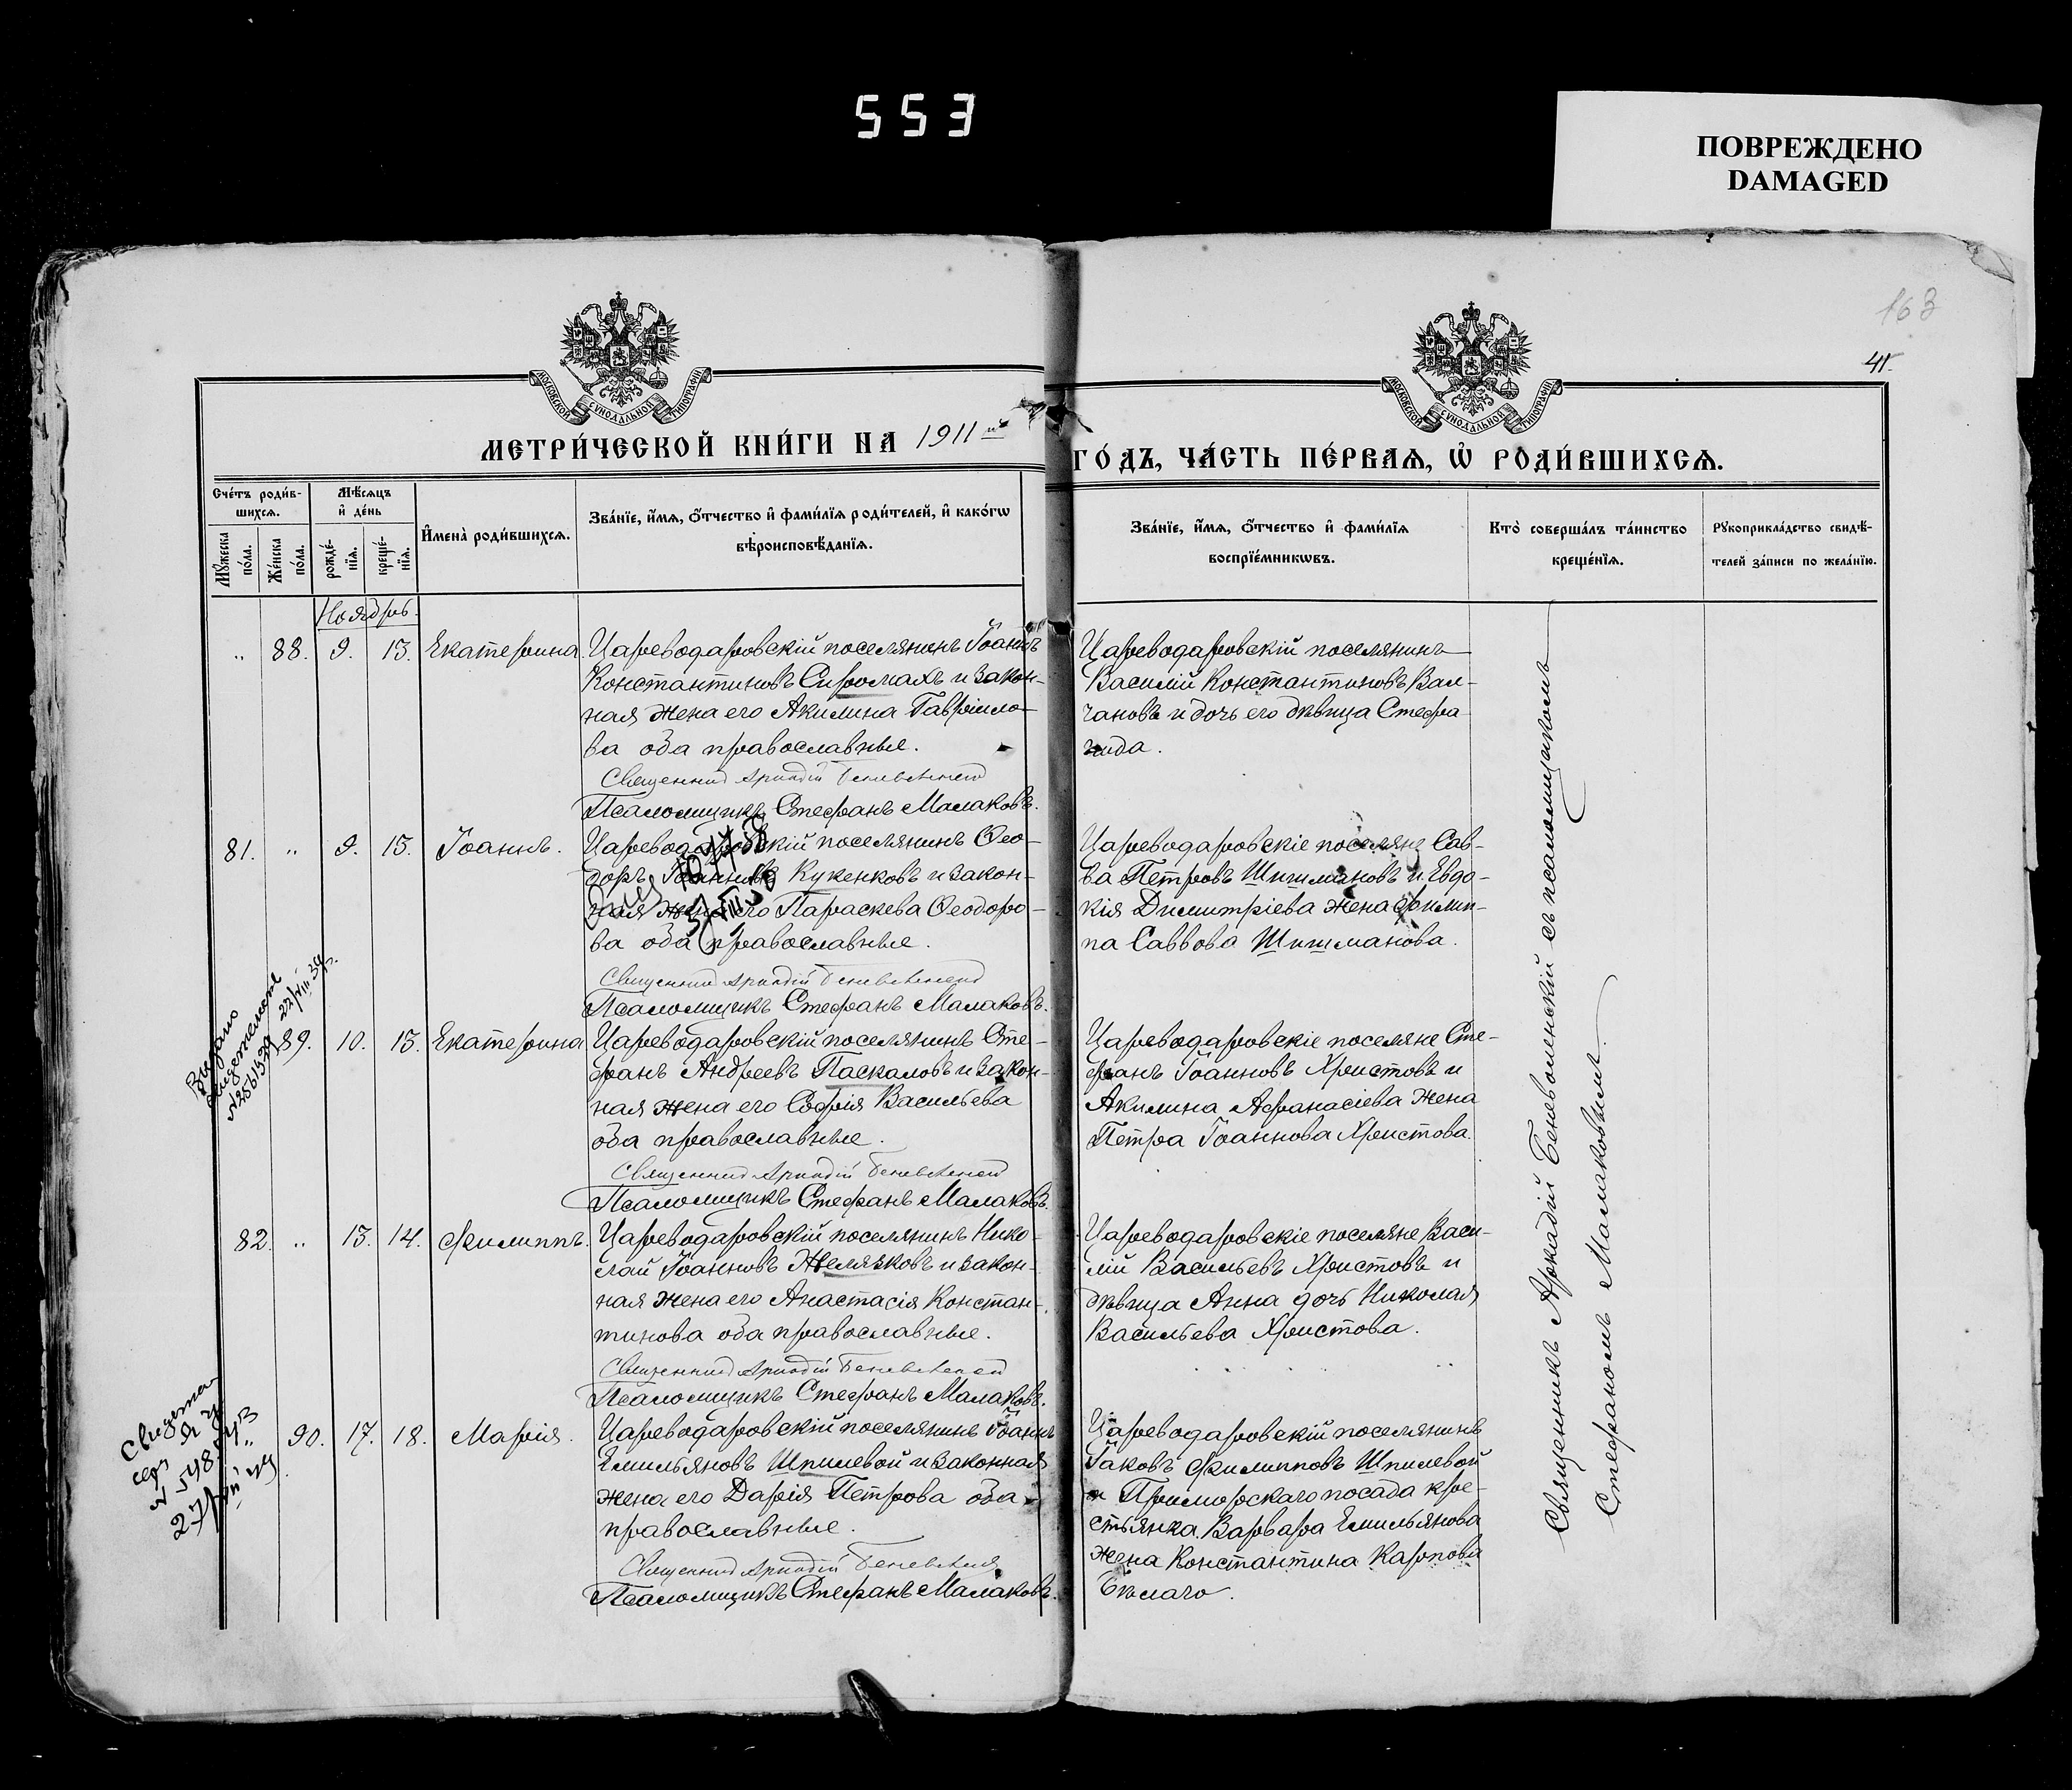 553
ПОВРЕЖДЕНО
DAMAGED
163
41.
МОСКОВСКОЙ СѴНОДАЛЬНОЙ ТИПОГРАФІИ
МОСКОВСКОЙ СѴНОДАЛЬНОЙ ТИПОГРАФІИ
МЕТРИ́ЧЕСКОЙ КНИ́ГИ НА 1911
ГО́ДЪ, ЧА́СТЬ ПЕ́РВАѦ, Ѽ РОДИ́ВШИХСѦ.
Сче́тъ роди́в-
шихсѧ.
Мꙋ́жеска
по́ла.
Же́нска
по́ла.
Мѣ́сѧцъ
и҆ де́нь
рожде́-
нїѧ.
креще́-
нїѧ.
И҆мена̀ роди́вшихсѧ.
Зва́нїе, и҆́мѧ, ѻ҆́тчество и҆ фами́лїѧ роди́телей, и҆ како́гѡ
вѣроисповѣ́данїѧ.
Зва́нїе, и҆́мѧ, ѻ҆́тчество и҆ фами́лїѧ
воспрїе́мникѡвъ.
Кто̀ соверша́лъ та́инство
креще́нїѧ.
Рꙋкоприкла́дство свидѣ́-
телей за́писи по жела́нїю.
Ноябрь.
„ 88. 9. 13. Екатерина. Цареводаровскій поселянинъ Іоаннъ
Константиновъ Сиромахъ и закон-
ная жена его Акилина Гавріило-
ва оба православные.
Священник Аркадій Беневоленский
Псаломщикъ Стефанъ Малаковъ.
Цареводаровскій поселянинъ
Василій Константиновъ Вал-
чановъ и дочь его дѣвица Стефа-
нида.
81. „ 9. 13. Іоаннъ. Цареводаровскій поселянинъ Ѳео-
доръ Іоанновъ Кукенковъ и закон-
ная жена его Параскева Ѳеодоро-
ва оба православные.
Священник Аркадій Беневоленский
Псаломщикъ Стефанъ Малаковъ.
Цареводаровскіе поселяне Сав-
ва Петровъ Шишмановъ и Евдо-
кія Димитріева жена Филип-
па Саввова Шишманова.
Выдано
свидетельст
22/VIII 39г.
89. 10. 13. Екатерина Цареводаровскій поселянинъ Сте-
фанъ Андреевъ Паскаловъ и закон-
ная жена его Софія Васильева
оба православные.
Священник Аркадій Беневоленский
Псаломщикъ Стефанъ Малаковъ.
Цареводаровскіе поселяне Сте-
фанъ Іоанновъ Христовъ и
Акилина Афанасіева жена
Петра Іоаннова Христова.
82. „ 13. 14. Филиппъ. Цареводаровскій поселянинъ Нико-
лай Іоанновъ Желязковъ и закон-
ная жена его Анастасія Констан-
тинова оба православные.
Священник Аркадій Беневоленский
Псаломщикъ Стефанъ Малаковъ.
Цареводаровскіе поселяне Васи-
лій Васильевъ Христовъ и
дѣвица Анна дочь Николая
Васильева Христова.
90. 17. 18. Марія. Цареводаровскій поселянинъ Іоаннъ
Емильяновъ Шпилевой и законная
жена его Дарія Петрова оба
православные.
Священник Аркадій Беневоленский
Псаломщикъ Стефанъ Малаковъ.
Цареводаровскій поселянинъ
Іаковъ Филипповъ Шпилевой
и Приморскаго посада кре-
стьянка Варвара Емильянова
жена Константина Карпова
Бѣлаго.
Священникъ Аркадій Беневоленскій съ псаломщикомъ
Стефаномъ Малаковымъ.